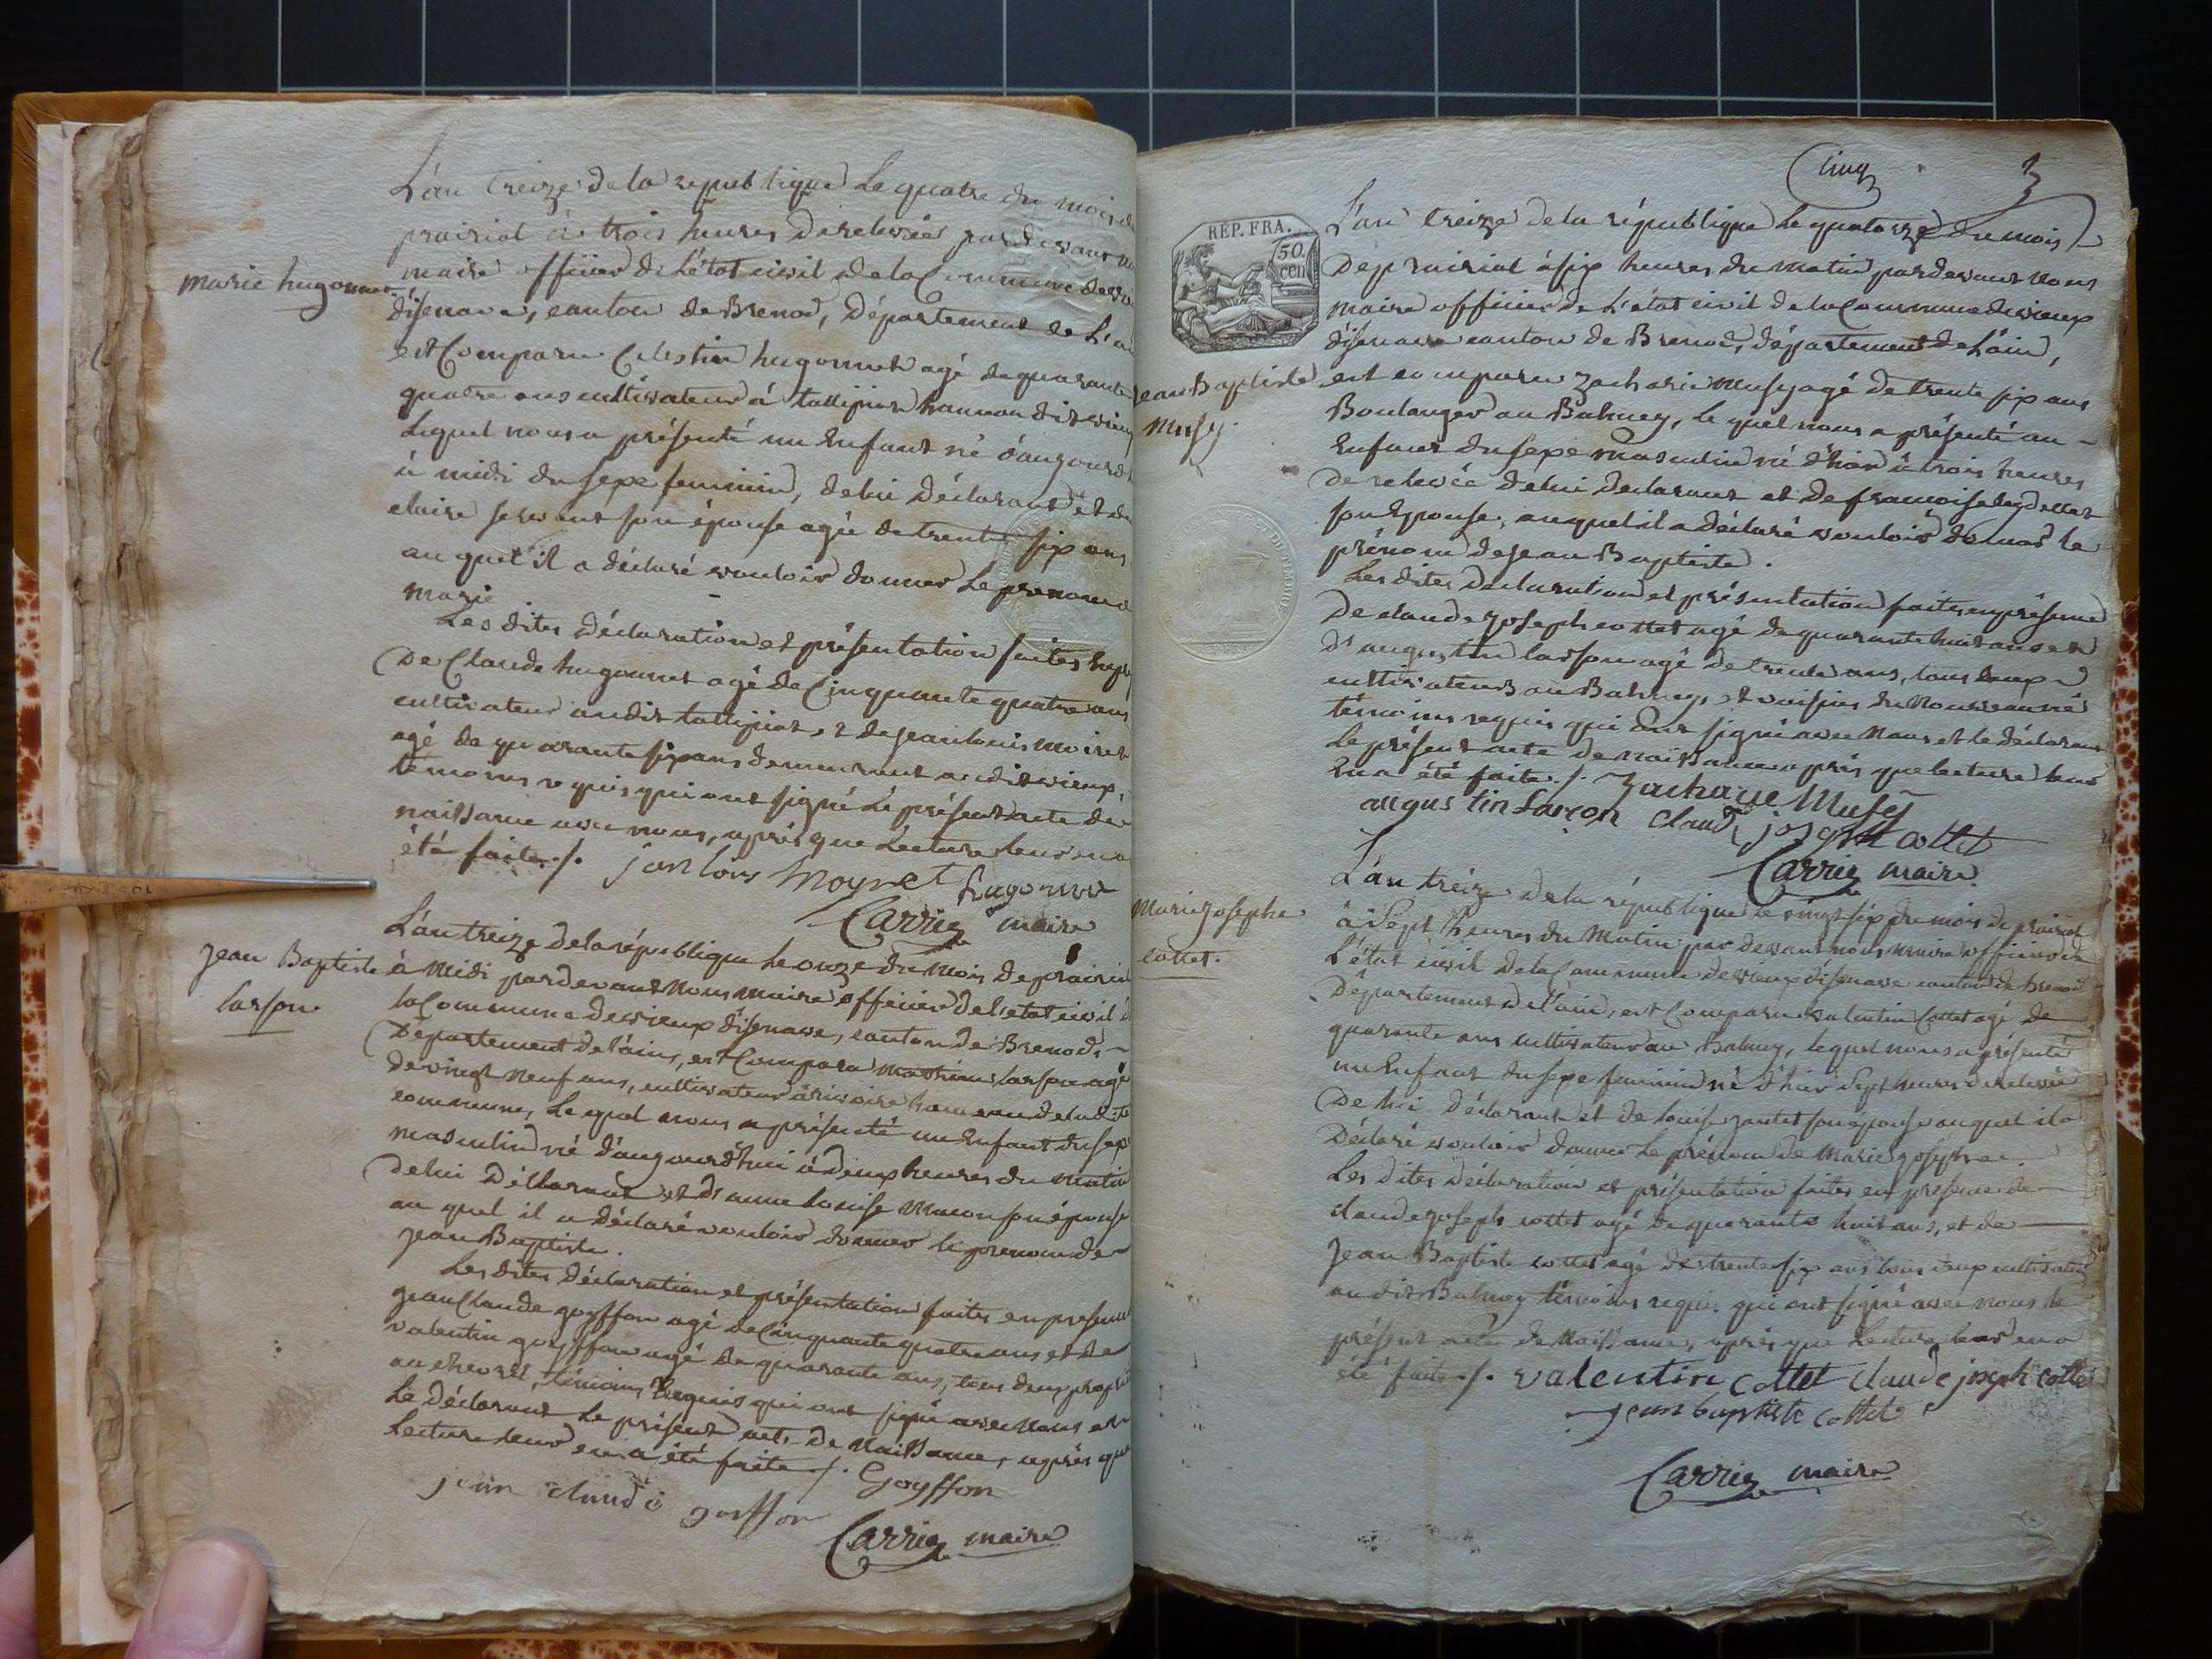 L'an treize de la republique le quatre du mois de
prairial à trois heures de relevée, par devant n
maire officier de L'état civil de la Commune de vi
marie hugonnet
d'isenave, canton de Brenod, Département de L'a
est Comparu Celestin hugonnet agé de quarante
quatre ans cultivateur à tallipiat hameau dit vieux
Lequel nous a présenté un Enfant né d'aujourd
à midi du sexe feminin, de lui Déclarant et de
claire servant son épouse agée de trente six ans
au quel il a déclaré vouloir donner Le prenom d
marie
Les dites déclaration et présentation faites En pr
De Claude hugonnet agé de Cinquante quatre ans
cultivateur au dit tallipiat, et de jean louis moiret
agé de quarante six ans demeurant au dit vieux,
témoins requis qui ont signé Le présent acte de
naissance avec nous, après que Lecture leur en a
été faite ./. jan louis moyret hugonnet
Carrier maire
L'an treize de la république Le onze du mois de prairial
Jean Baptiste
larson
à Midi pardevant Nous maire officier de l'état civil d
la Commune de vieux d'isenave, canton de Brenod,
Département de l'ain, est Comparu mathieu larson agé
de vingt neuf ans, cultivateur à rivoire hameau de la dite
commune, Le quel nous a présenté un Enfant du sexe
masculin né d'aujourd'hui à deux heures du matin
de lui Déclarant et d'anne louise macon son épouse
au quel il a déclaré vouloir donner le prenom de
Jean Baptiste.
Les dites déclaration et présentation faites en presence
jean Claude goyffon agé de Cinquante quatre ans et de
valentin goyffon agé de quarante ans, tous deux propri
au chevril, témoins Requis qui ont signé avec Nous et
Le déclarant Le présent acte De Naissance, après que
Lecture leur en a été faite ./. Goyffon
jean claude goiffon
Carrier maire
Cinq
3
RÉP. FRA.
50
cen
L'an treize de la république Le quatorze du mois
De prairial à six heures du matin pardevant Nous
maire officier de L'état civil de la Commune de vieux
d'isenave canton de Brenod, département de L'ain,
Jean Baptiste
Musy.
est comparu zacharie Musy agé de trente six ans
Boulanger au Balmey, Le quel nous a présenté un
Enfant du sexe masculin né d'hier à trois heures
De relevée de lui Declarant et de francoise leydellet
son Epouse, auquel il a déclaré vouloir donner le
prénom de jean Baptiste.
Les dites Declaration et présentation faites en présence
De claude joseph cottet agé de quarante huit ans et
d'augustin larson agé de trente ans, tous deux
cultivateurs au Balmey, et voisins du Nouveau né
témoins requis qui Ont signé avec Nous et le déclarant
Le présent acte de naissance après que lecture leur
En a été faite ./. Zacharie Musy
augustin Larçon Claude joseph cottet
Carrier maire
L'an treize de la république le vingt six du mois de prairial
Marie josephe
cottet.
à Sept heures du Matin par devant nous maire officier de
L'état civil de la Commune de vieux d'isenave canton de Brenod
Département de l'ain, est Comparu valentin Cottet agé de
quarante ans cultivateur au Balmey, lequel nous a présenté
un Enfant du sexe feminin né d'hier Sept heures de relevée
De lui Déclarant et de louise jantet son épouse auquel il a
Déclaré vouloir donner Le prénom de Marie josephe.
Les Dites Déclaration et présentation faites en presence de
claude joseph cottet agé de quarante huit ans, et de
Jean Baptiste cottet agé de trente six ans tous deux cultivateurs
au dit Balmey témoins requis qui ont signé avec nous le
présent acte de Naissance, après que Lecture leur en a
été faite ./. valentin Cottet claude joseph cotte
jean baptiste cottet
Carrier maire